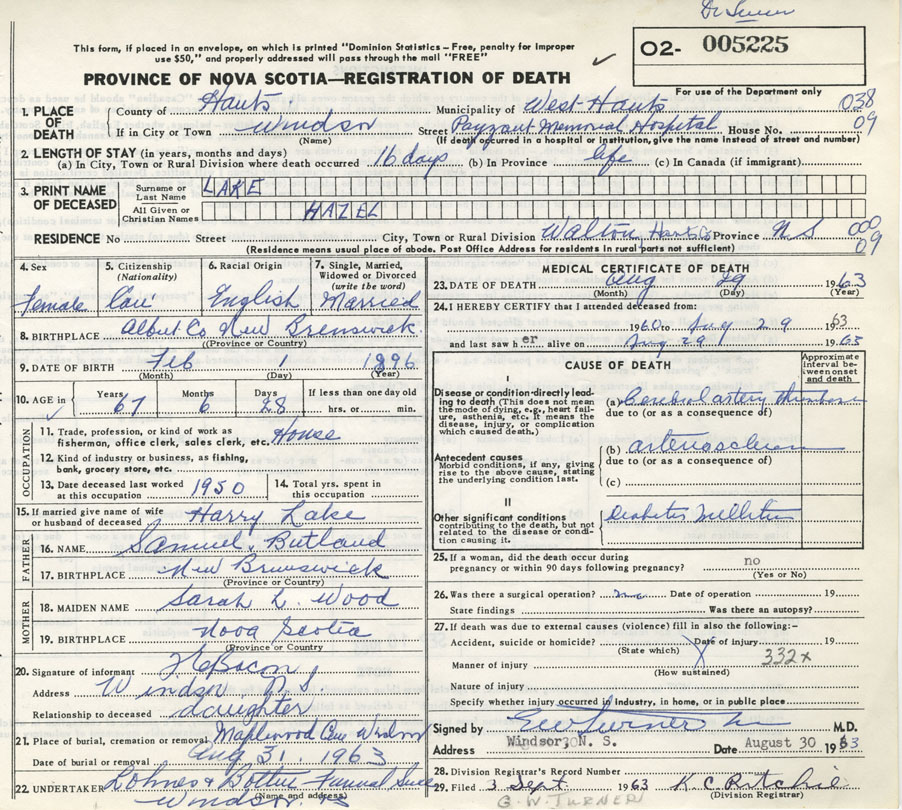 Dr Turner
This form, if placed in an envelope, on which is printed "Dominion Statistics – Free, penalty for improper
use $50," and properly addressed will pass through the mail "FREE"
02- 005225
PROVINCE OF NOVA SCOTIA—REGISTRATION OF DEATH
For use of the Department only
1. PLACE OF DEATH County of Hants Municipality of West Hants 038
If in City or Town Windsor Street Payzant Memorial Hospital House No. 09
(Name) (If death occurred in a hospital or institution, give the name instead of street and number)
2. LENGTH OF STAY (in years, months and days)
(a) In City, Town or Rural Division where death occurred 16 days (b) In Province life (c) In Canada (if immigrant)
3. PRINT NAME OF DECEASED Surname or Last Name LAKE
All Given or Christian Names HAZEL
RESIDENCE No Street City, Town or Rural Division Walton, Hants Co Province N S 000
09
(Residence means usual place of abode. Post Office Address for residents in rural parts not sufficient)
4. Sex Female
5. Citizenship (Nationality) Can
6. Racial Origin English
7. Single, Married, Widowed or Divorced (write the word) Married
8. BIRTHPLACE Albert Co. New Brunswick
(Province or Country)
9. DATE OF BIRTH Feb 1 1896
(Month) (Day) (Year)
10. AGE in Years 67 Months 6 Days 28 If less than one day old hrs. or min.
OCCUPATION
11. Trade, profession, or kind of work as
fisherman, office clerk, sales clerk, etc. House
12. Kind of industry or business, as fishing,
bank, grocery store, etc.
13. Date deceased last worked at this occupation 1950
14. Total yrs. spent in this occupation
15. If married give name of wife
or husband of deceased Harry Lake
FATHER
16. NAME Samuel Butland
17. BIRTHPLACE New Brunswick
(Province or Country)
MOTHER
18. MAIDEN NAME Sarah L. Wood
19. BIRTHPLACE Nova Scotia
(Province or Country)
20. Signature of informant Bacon
Address Windsor N.S.
Relationship to deceased daughter
21. Place of burial, cremation or removal Maplewood Cem Windsor
Date of burial or removal Aug 31, 1963
22. UNDERTAKER Funeral
Windsor
(Name and address)
MEDICAL CERTIFICATE OF DEATH
23. DATE OF DEATH Aug 29 1963
(Month) (Day) (Year)
24. I HEREBY CERTIFY that I attended deceased from:
1960 to Aug 29 1963
and last saw her alive on Aug 29 1963
CAUSE OF DEATH
Approximate interval between onset and death
I
Disease or condition directly leading
to death (This does not mean
the mode of dying, e.g., heart failure,
asthenia, etc. It means the
disease, injury, or complication
which caused death.)
(a) Cerebral artery thrombosis
due to (or as a consequence of)
Antecedent causes
Morbid conditions, if any, giving
rise to the above cause, stating
the underlying condition last.
(b) arteriosclerosis
due to (or as a consequence of)
(c)
II
Other significant conditions
contributing to the death, but not
related to the disease or condition
causing it.
Diabetes Mellitus
25. If a woman, did the death occur during
pregnancy or within 90 days following pregnancy? no
(Yes or No)
26. Was there a surgical operation? no Date of operation 19
State findings Was there an autopsy?
27. If death was due to external causes (violence) fill in also the following:-
Accident, suicide or homicide? Date of injury 19
(State which)
Manner of injury 332x
(How sustained)
Nature of injury
Specify whether injury occurred in Industry, in home, or in public place
Signed by E W Turner M.D.
Address Windsor N. S. Date August 30 1963
28. Division Registrar's Record Number
29. Filed 3 Sept 1963 K C Ritchie
(Division Registrar)
G. W. TURNER